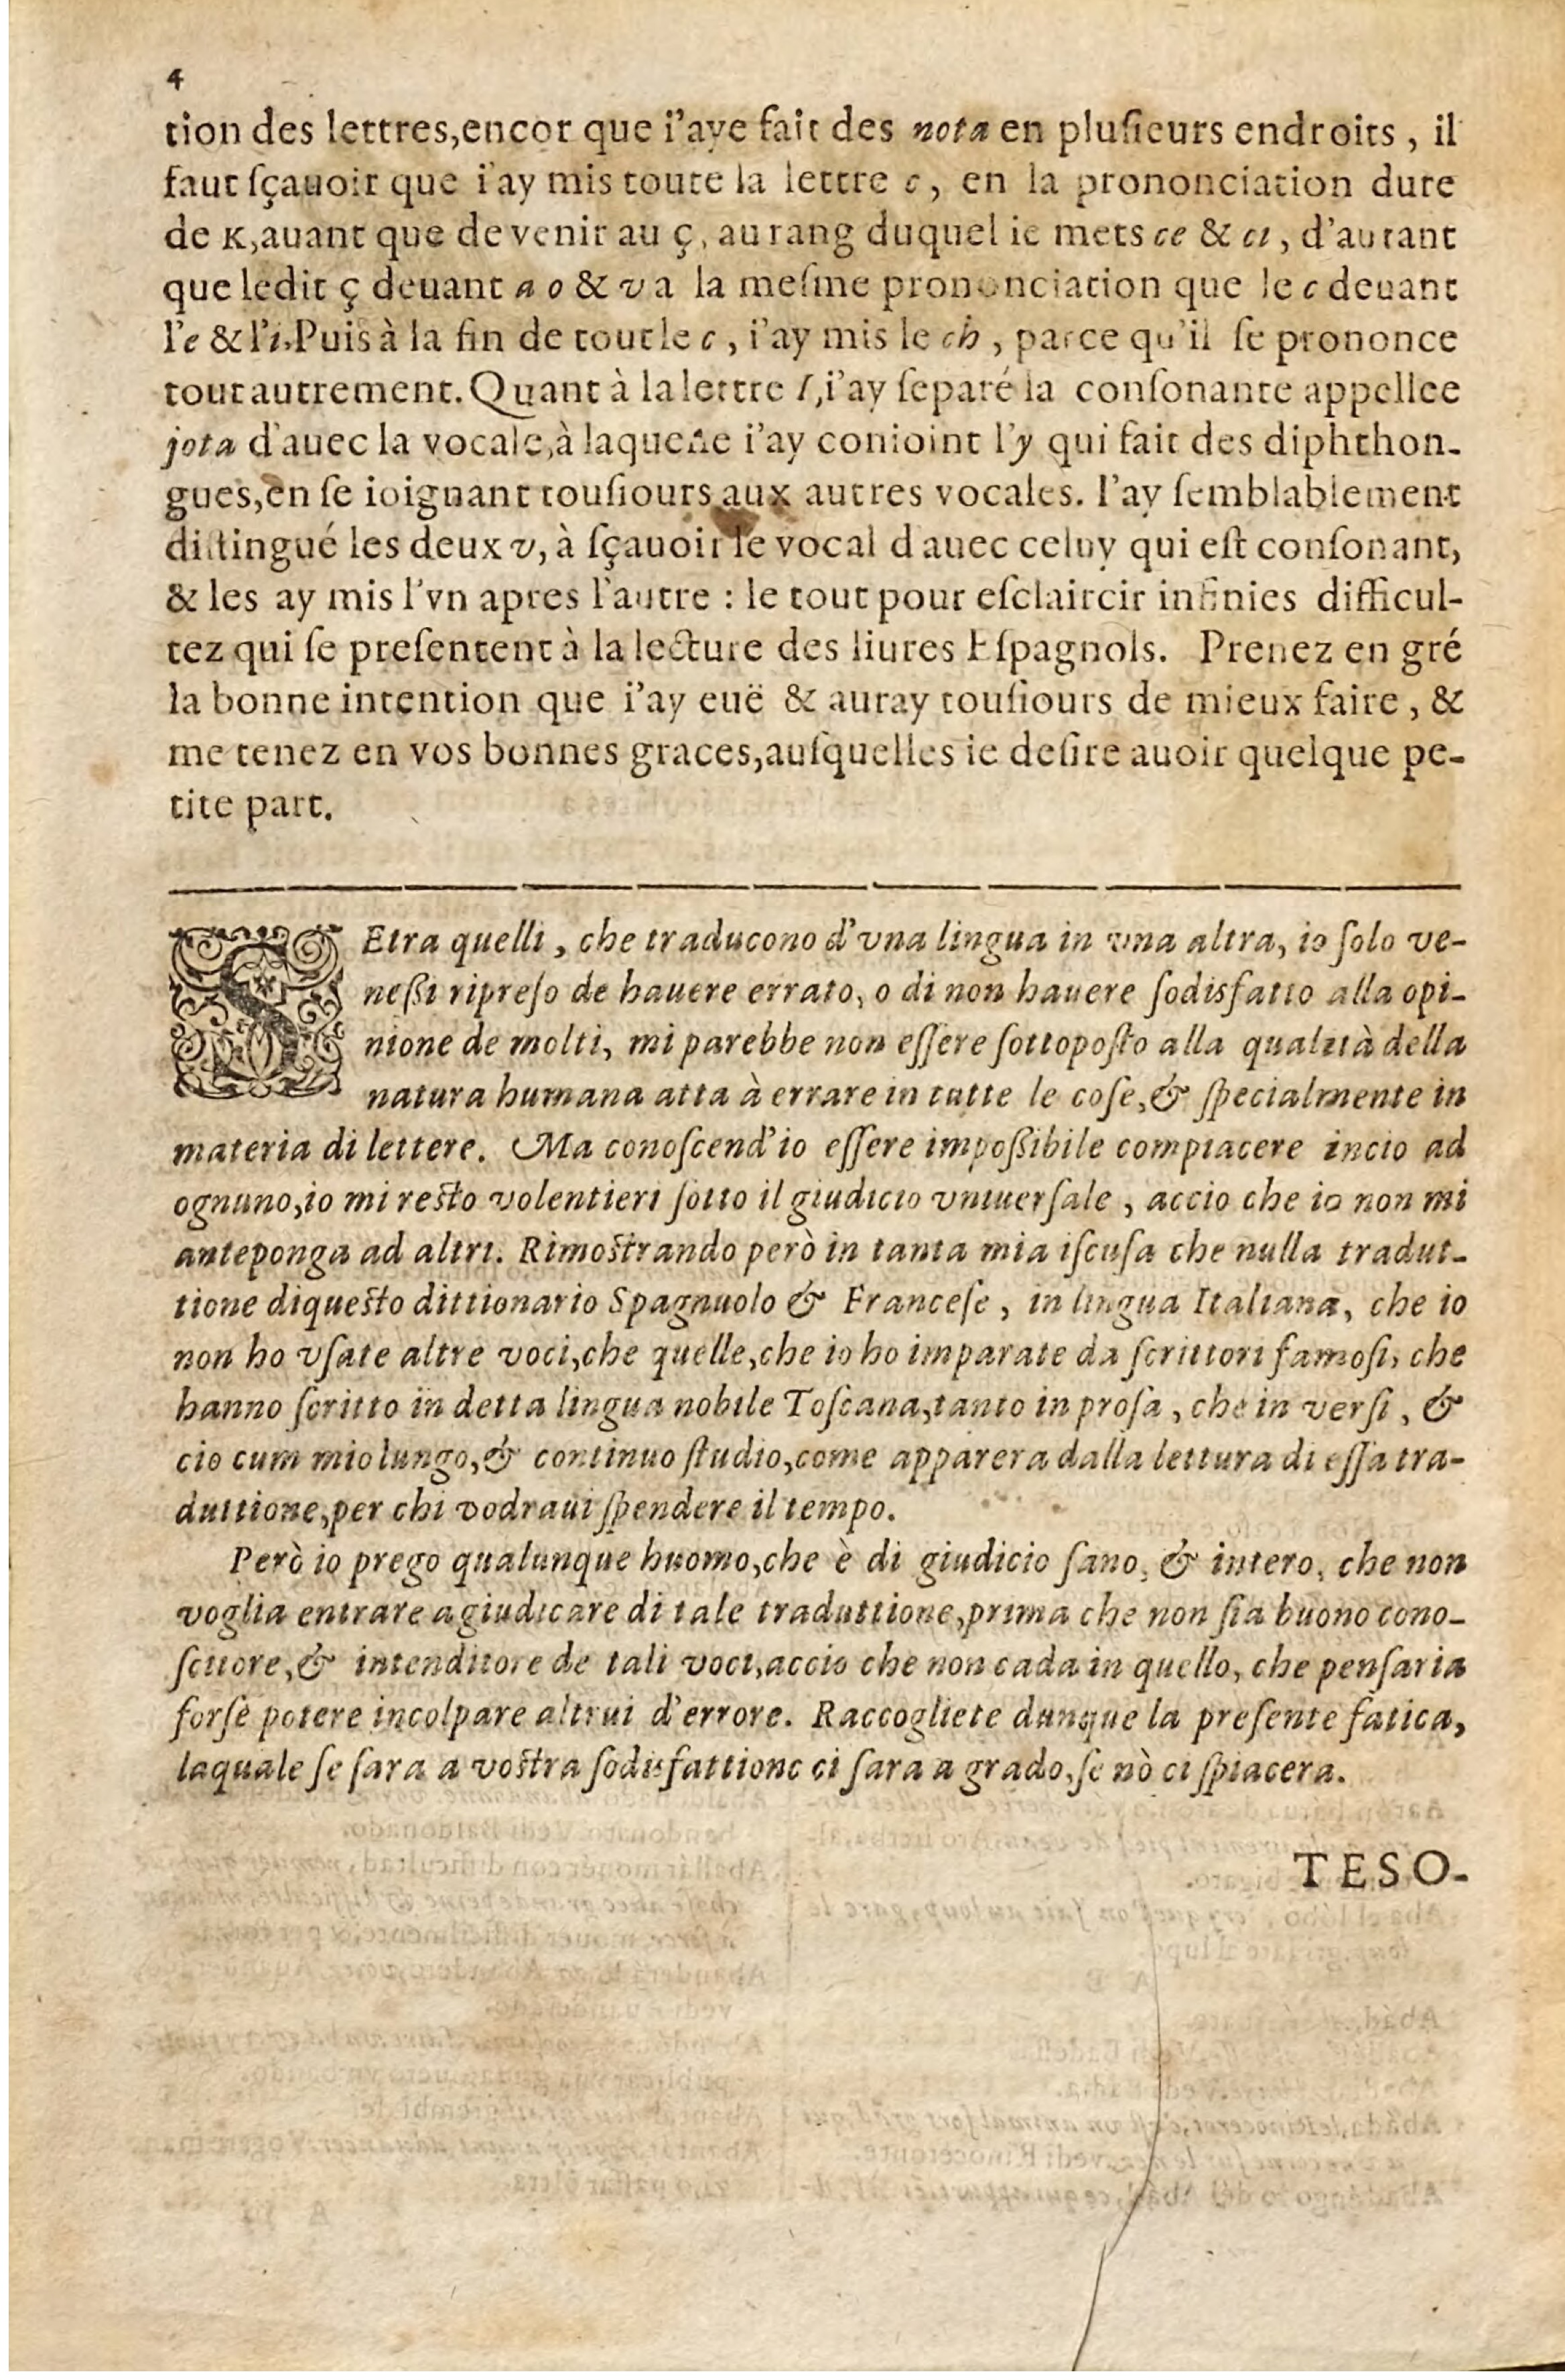 4
tion des lettres,encor que i'aye fait des nota en pluſieurs endroits, il
faut ſçauoir que i'ay mis toute la lettre c, en la prononciation dure
de K,auant que de venir au ç, au rang duquel ie mets ce & ci, d'autant
que ledit ç deuant a o & v a la meſme prononciation que le c deuant
l'e & l'i.Puis à la fin de tout le c, i'ay mis le ch, parce qu'il ſe prononce
tout autrement. Quant à la lettre I,i'ay ſeparé la conſonante appellee
jota d'auec la vocale,à laquelle i'ay conioint l'y qui fait des diphthon-
gues,en ſe ioignant touſiours aux autres vocales. I'ay ſemblablement
diſtingué les deux v, à ſçauoir le vocal d'auec celuy qui eſt conſonant,
& les ay mis l'vn apres l'autre : le tout pour eſclaircir infinies difficul-
tez qui ſe preſentent à la lecture des liures Eſpagnols. Prenez en gré
la bonne intention que i'ay euë & auray touſiours de mieux faire, &
me tenez en vos bonnes graces,auſquelles ie deſire auoir quelque pe-
tite part.
SE tra quelli, che traducono d'vna lingua in vna altra, io ſolo ve-
neßi ripreſo de hauere errato, o di non hauere ſodisfatto alla opi-
nione de molti, mi parebbe non eſſere ſottopoſto alla qualità della
natura humana atta à errare in tutte le coſe,& ſpecialmente in
materia di lettere. Ma conoſcend'io eſſere impoßibile compiacere incio ad
ognuno,io mi reſto volentieri ſotto il giudicio vniuerſale, accio che io non mi
anteponga ad altri. Rimoſtrando però in tanta mia iſcuſa che nulla tradut-
tione diqueſto dittionario Spagnuolo & Franceſe, in lingua Italiana, che io
non ho vſate altre voci,che quelle,che io ho imparate da ſcrittori famoſi, che
hanno ſcritto in detta lingua nobile Toſcana,tanto in proſa, che in verſi, &
cio cum mio lungo,& continuo ſtudio,come apparera dalla lettura di eſſa tra-
duttione,per chi vodraui ſpendere il tempo.
Però io prego qualunque huomo,che è di giudicio ſano, & intero, che non
voglia entrare a giudicare di tale traduttione,prima che non ſia buono cono-
ſcitore,& intenditore de tali voci,accio che non cada in quello, che penſaria
forſe potere incolpare altrui d'errore. Raccogliete dunque la preſente fatica,
laquale ſe ſara a voſtra ſodisfattione ci ſara a grado,ſe nò ci ſpiacera.
TESO-